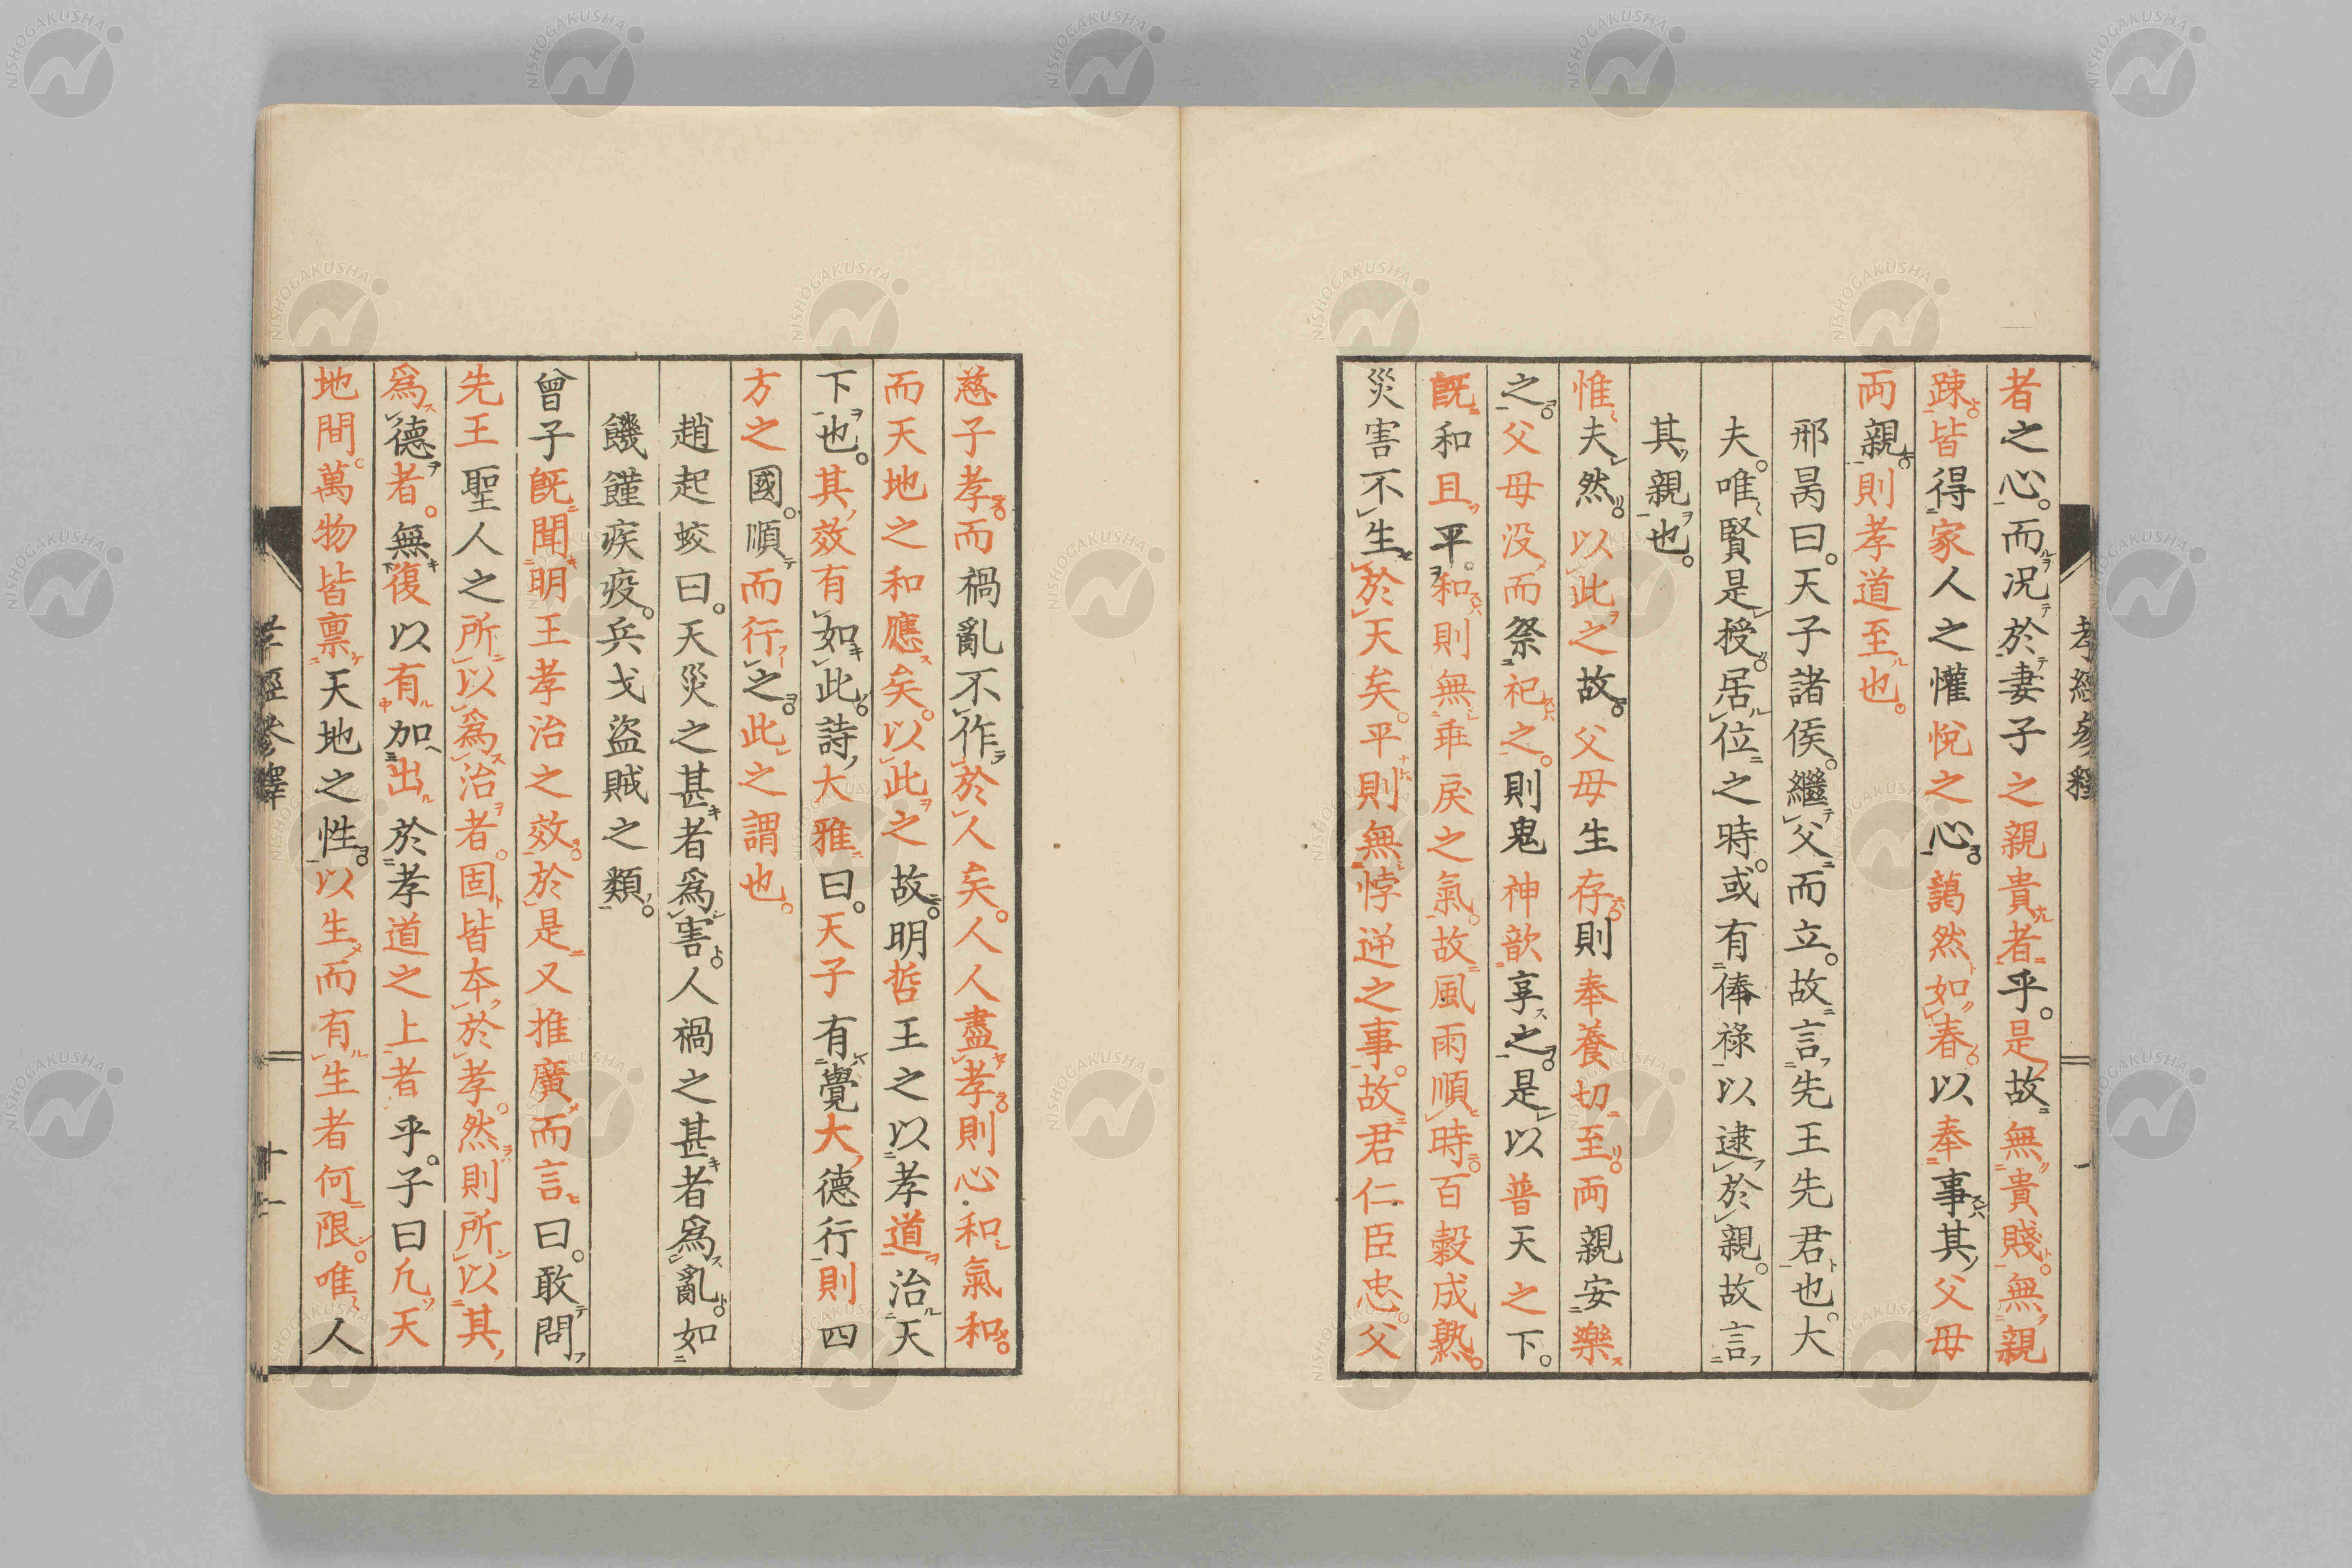 孝經參釋
者之心。而況於妻子之親貴者乎。是故無貴賤無親
踈皆得家人之懽悅之心藹然如春以奉事其父母
両親則孝道至也。
邢昺曰。天子諸侯。繼父而立。故言先王先君也。大
夫。唯賢是授居位之時。或有俸祿以逮於親。故言
其親也。
惟夫然以此之故父母生存則奉養切至両親安樂
之父母没而祭祀之。則鬼神歆享之是以普天之下。
既和且平。和則無乖戾之氣。故風雨順時百穀成熟。
災害不生於天矣。平則無悖逆之事。故君仁臣忠父
慈子孝而禍亂不作於人矣。人人盡孝則心和氣和
而天地之和應矣。以此之故。明哲王之以孝道治天
下也。其效有如此詩大雅曰。天子有覺大德行則四
方之國。順而行之此之謂也。
趙起蛟曰。天災之甚者爲害人禍之甚者爲亂如
饑饉疾疫。兵戈盜賊之類。
曾子既聞明王孝治之效於是又推廣而言曰。敢問
先王聖人之所以爲治者。固皆本於孝。然則所以其
爲德者。無復以有加出於孝道之上者乎。子曰凡天
地間。萬物皆禀天地之性以生而有生者何限。唯人
孝經參釋
十一
NISHOGAKUSHA